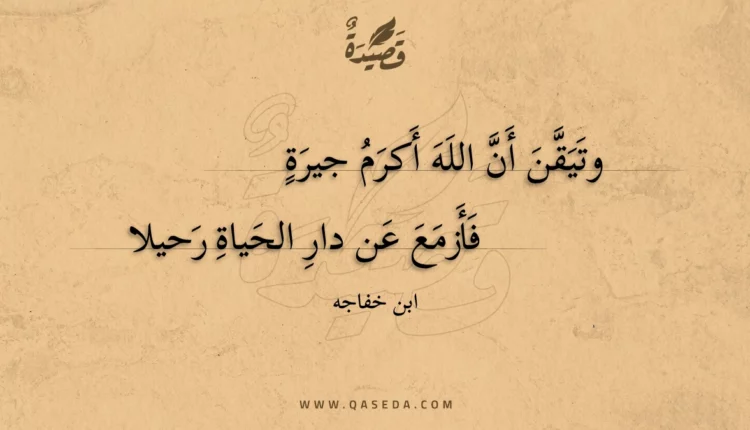 قَصِيْدَةٌ
وتَيَقَّنَ أَنَّ اللَهَ أَكرَمُ جيرَةٍ
فَأَزمَعَ عَن دارِ الحَياةِ رَحيلا
ابن خفاجه
WWW.QASEDA.COM